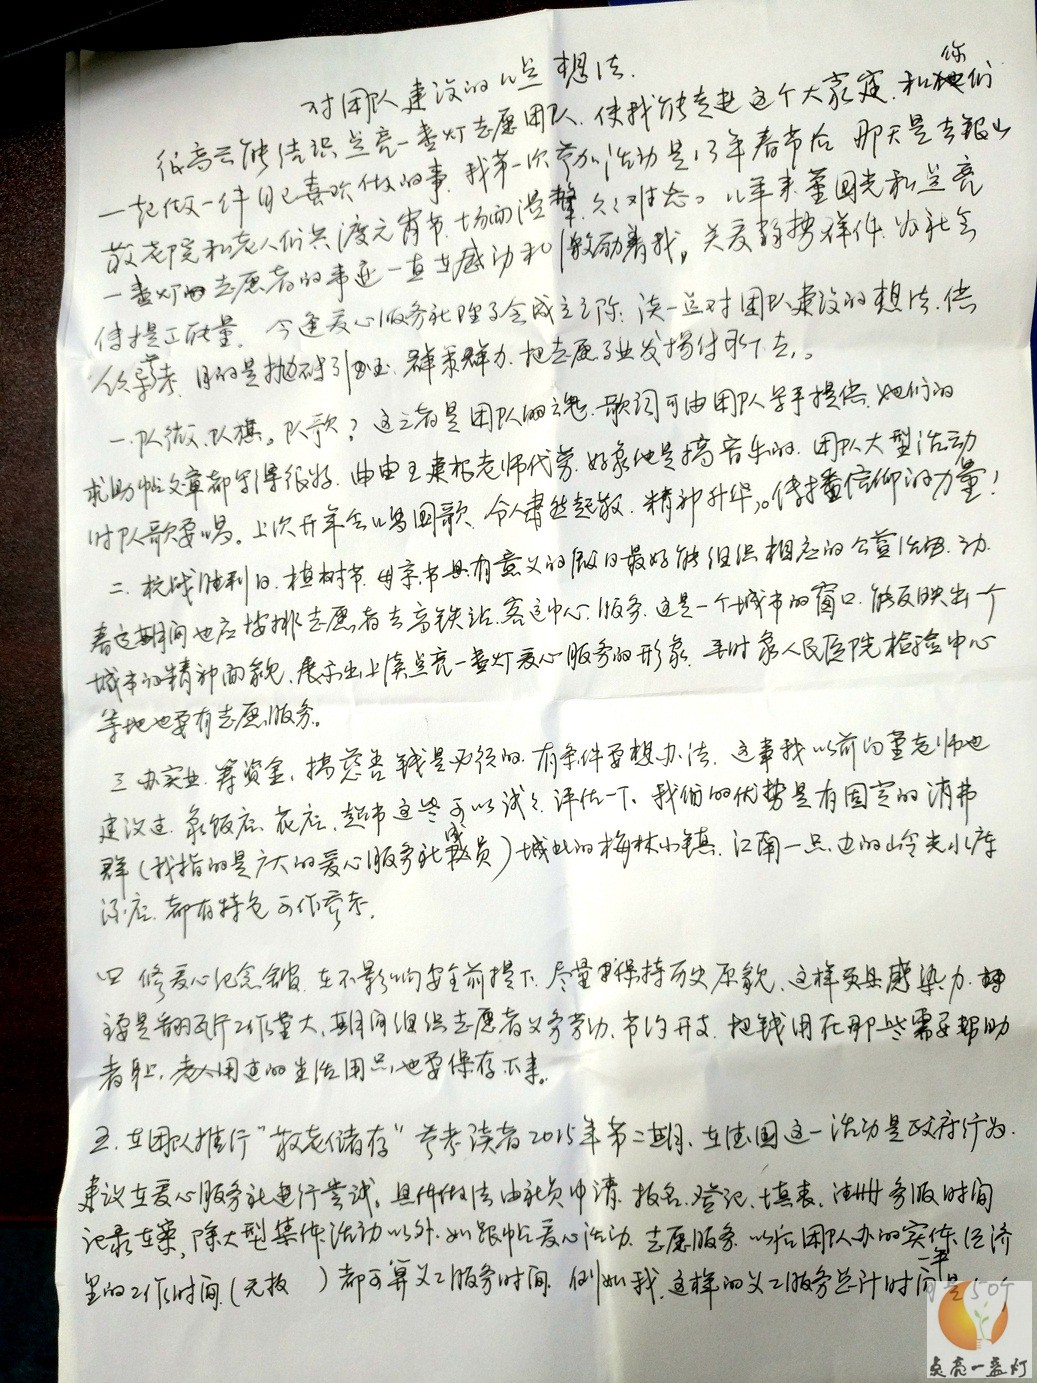 对团队建设的几点想法.
很高兴能结识点亮一盏灯志愿团队.使我能走进这个大家庭.和你们
一起做一件自己喜欢做的事.我第一次参加活动是13年春节后 那天是去银山
敬老院和老人们共渡元宵节.场面温馨.久久难忘。几年来董国光和点亮
一盏灯的志愿者的事迹一直在感动和激励着我,关爱弱势群体.为社会
传播正能量. 今逢爱心服务社理事会成立之际.谈一点对团队建设的想法.供
参考.目的是抛砖引玉.群策群力.把志愿事业发扬传承下去.。
一.队徽.队旗。队歌?这三者是团队的魂.歌词可由团队学手提供.她们的
求助帖文章都写得很好.曲由王来根老师代劳.好象他是搞音乐的.团队大型活动
时队歌要唱。上次开年会唱国歌、令人肃然起敬.精神升华,。传播信仰的力量!
二.抗战胜利日.植树节.母亲节具有意义的假日最好能组织相应的公益活动.
春运期间也应按排志愿者去高铁站.客运中心服务.这是一个城市的窗口.能反映出一个
城市的精神面貌、展示出上溪点亮一盏灯爱心服务的形象.平时象人民医院检验中心
等地也要有志愿服务。
三 办实业.筹资金.搞慈善 钱是必须的.有条件要想办法.这事我以前向董老师也
建议过.象饭店.花店.超市这些可以试试.评估一下.我们的优势是有固定的消费
群(我指的是广大的爱心服务社成员)城北的梅林小镇.江南一点边的岭光水库
饭店.都有特色可作参考.
四 修爱心纪念馆.在不影响安全前提下.尽量保持历史原貌、这样更具感染力.
主要是翻瓦片工作量大、期间组织志愿者义务劳动.节约开支.把钱用在那些需要帮助
者身上.老人用过的生活用品,也要保存下来。
五.在团队推行"敬老储存"参考读者2015年第二期.在德国这一活动是政府行为.
建议在爱心服务社进行尝试。具体做法由社员申请.报名.登记.填表.注册 务服时间
记录在案,除大型集体活动以外.如跟帖爱心活动.志愿服务.以后团队办的实体经济
里的工作时间.(无报 )都可算义工服务时间.例如我.这样的义工服务总计时间一年是50个
点亮一盏灯